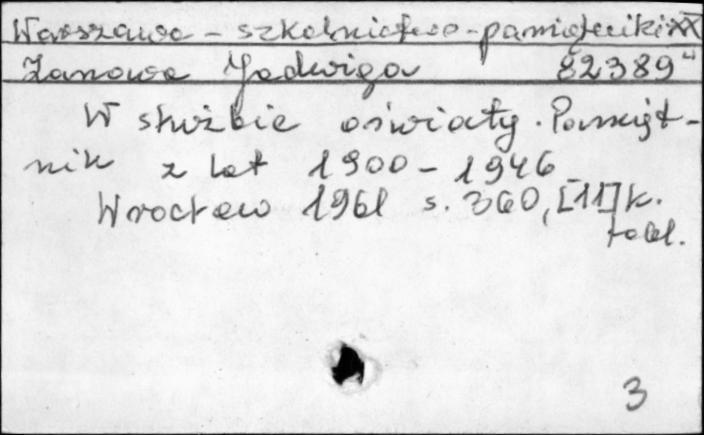 Warszawa - szkolnictwo - pamiętniki XX
Zanowa Jadwiga 82389"
W służbie oświaty. Pamięt-
nik z lat 1900-1946
Wrocław 1961 s. 360, [11] k.
tabl.
3